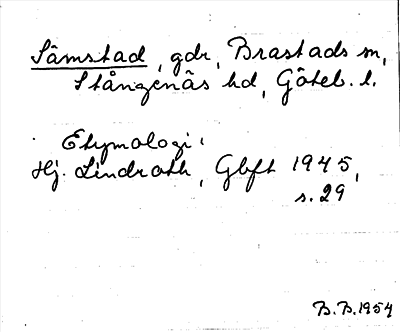 Såmstad, gdr, Brastads sn,
Stångenäs hd, Göteb. l.
Etymologi:
Hj. Lindroth, Gbft 1945,
s. 29
B.B. 1954